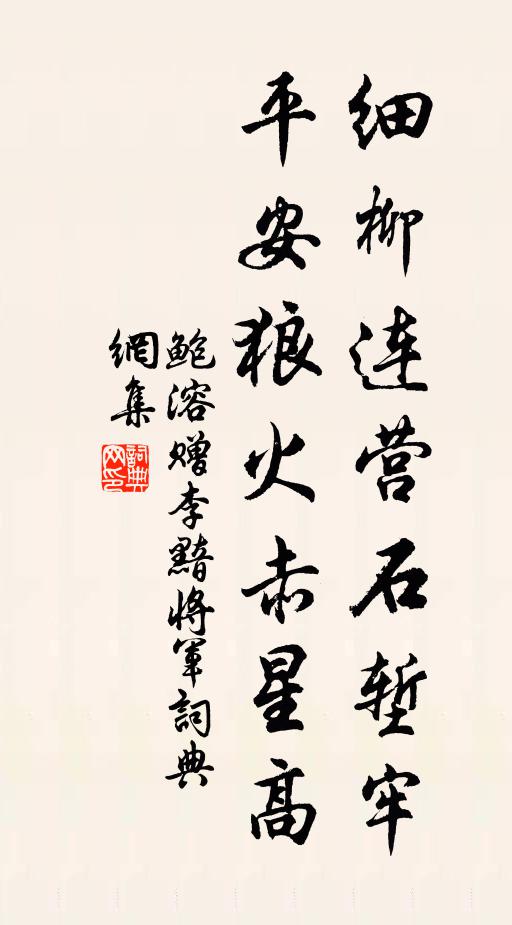 细柳连营石堑牢
平安狼火赤星高
鲍溶赠李黯将军詞典
網集
詞典
网印